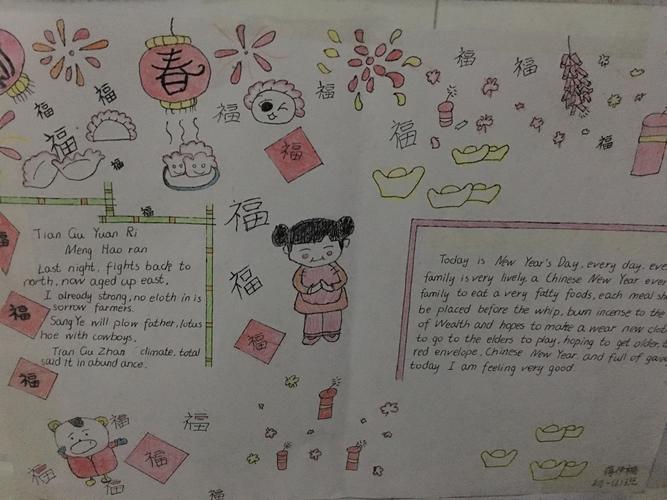 春
福
福
福
福
福
福
福
福
福
福
福
福
Tian Gu Yuan Ri
Meng Hao ran
Last night, fights back to
north, now aged up east,
I already strong, no cloth in is
sorrow farmers.
Sang Ye will plow father, lotus
hoe with cowboys.
Tian Gu Zhan climate, total
said it in abund ance.
福
福
福
福
福
福
Today is New Year's Day, every day, eve
family is very lively, a Chinese New Year ever
family to eat a very fatty foods, each meal sh
be placed before the whip, burn incense to the
of Wealth and hopes to make a wear new clo
to go to the elders to play, hoping to get older,
red envelope, Chinese New Year. and full of
today I am feeling very good.
福
福
福
福
福
福